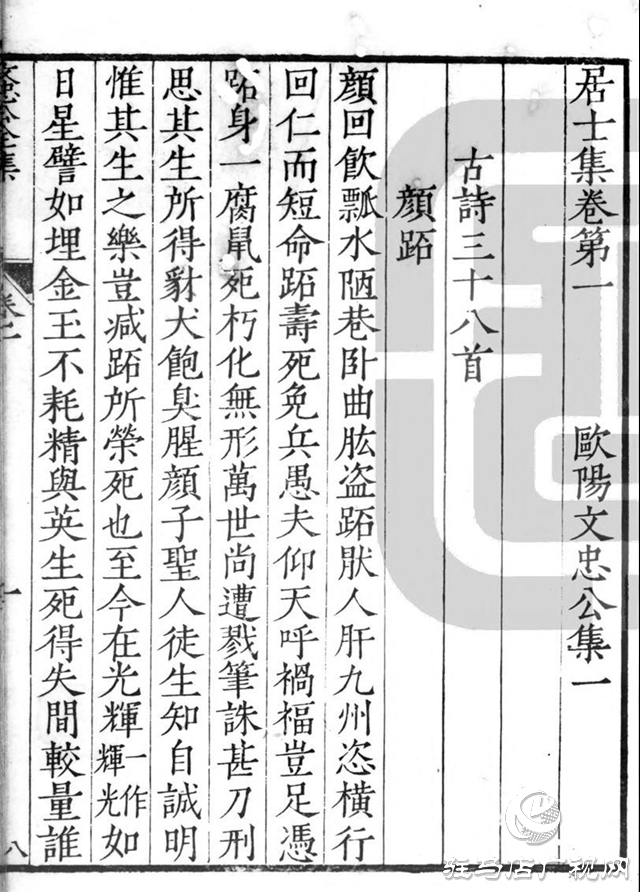 居士集卷第一 歐陽文忠公集一
古詩三十八首
顏跖
顏回飲瓢水陋巷卧曲肱盗跖猒人肝九州恣橫行
回仁而短命跖壽死免兵愚夫仰天呼禍福豈足憑
跖身一腐鼠死朽化無形萬世尚遭戮筆誅甚刀刑
思其生所得豺犬飽臭腥顏子聖人徒生知自誠明
惟其生之樂豈减跖所榮死也至今在光輝一作輝光如
日星譬如埋金玉不耗精與英生死得失間較量誰
卷一
一
八
驻马店广视网